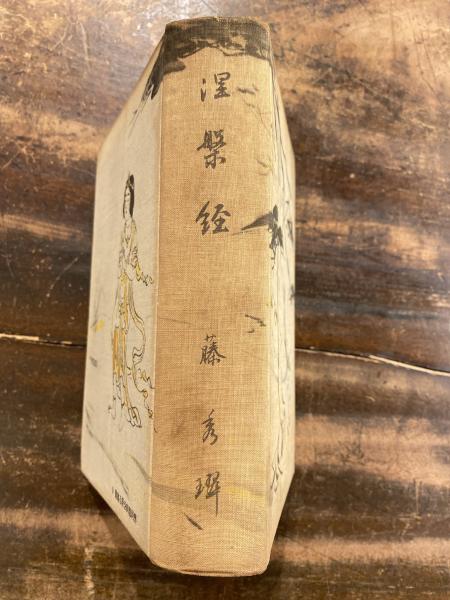 涅槃経
藤秀璻